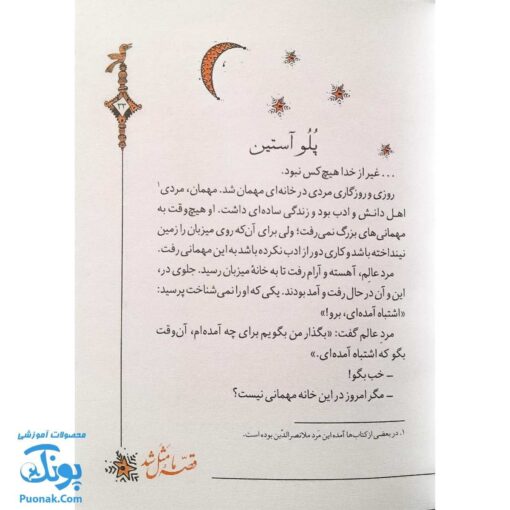 ۲۲
پُلُو آستین
... غیر از خدا هیچ کس نبود.
روزی و روزگاری مردی در خانه‌ای مهمان شد. مهمان، مردی۱
اهل دانش و ادب بود و زندگی ساده‌ای داشت. او هیچ‌وقت به
مهمانی‌های بزرگ نمی‌رفت؛ ولی برای آن‌که روی میزبان را زمین
نینداخته باشد و کاری دور از ادب نکرده باشد به این مهمانی رفت.
مرد عالِم، آهسته و آرام رفت تا به خانهٔ میزبان رسید. جلوی در،
این و آن در حال رفت و آمد بودند. یکی که او را نمی‌شناخت پرسید:
«اشتباه آمده‌ای، برو!»
مردِ عالم گفت: «بگذار من بگویم برای چه آمده‌ام، آن‌وقت
بگو که اشتباه آمده‌ای.»
- خب بگو!
- مگر امروز در این خانه مهمانی نیست؟
۱. در بعضی از کتاب‌ها آمده این مَرد ملانصرالدّین بوده است.
قصّه ما مَثَل شد
محصولات آموزشی
پونک
Puonak.Com